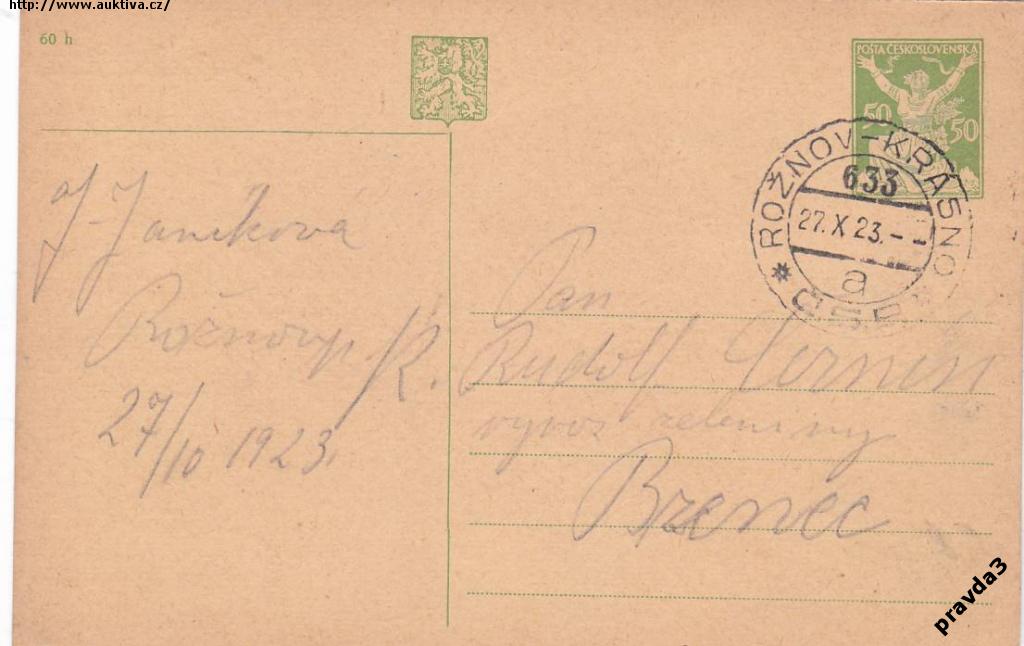 http://www.auktiva.cz/
60 h
POŠTA ČESKOSLOVENSKÁ
50 50
ROŽNOV-KRÁSNO
633
27.X 23.--
a
ČSP
J. Janíková
Rožnov p R.
27/10 1923.
Pan
Rudolf
vývoz zeleniny
Bzenec
pravda3